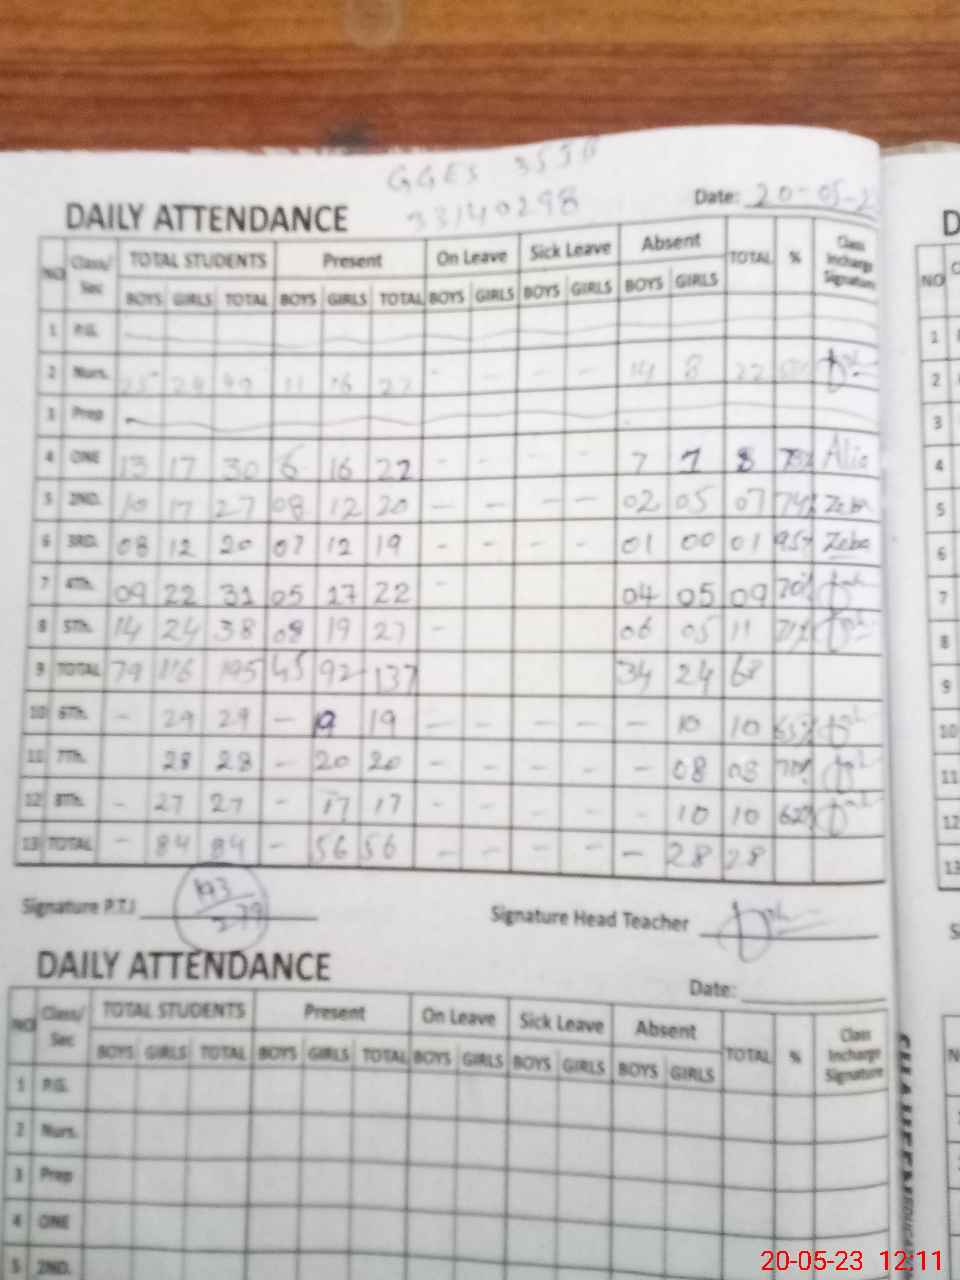 GGES 355G
33140298
DAILY ATTENDANCE Date: 20-05-2
NO Class/ Sec TOTAL STUDENTS Present On Leave Sick Leave Absent TOTAL % Class Incharge Signature
BOYS GIRLS TOTAL BOYS GIRLS TOTAL BOYS GIRLS BOYS GIRLS BOYS GIRLS
1 P.G.
2 Nurs. 25 24 49 11 16 27 - - - - 14 8 22
3 Prep
4 ONE 13 17 30 6 16 22 - - - - 7 1 8 73% Alia
5 2ND. 10 17 27 08 12 20 - - - - 02 05 07 74% Zeba
6 3RD. 08 12 20 07 12 19 - - - - 01 00 01 95% Zeba
7 4Th. 09 22 31 05 17 22 - 04 05 09 70%
8 5Th. 14 24 38 08 19 27 - 06 05 11 71%
9 TOTAL 79 116 195 45 92 137 34 24
10 6Th. - 29 29 - 19 19 - - - - - 10 10 65%
11 7Th. 28 28 - 20 20 - - - - - 08 08 70%
12 8Th. - 27 27 - 17 17 - - - - - 10 10 62%
13 TOTAL - 84 84 - 56 56 - - - - - 28 28
Signature P.T.I 193 Signature Head Teacher
279
DAILY ATTENDANCE Date:
NO Class/ Sec TOTAL STUDENTS Present On Leave Sick Leave Absent TOTAL % Class Incharge Signature
BOYS GIRLS TOTAL BOYS GIRLS TOTAL BOYS GIRLS BOYS GIRLS BOYS GIRLS
1 P.G.
2 Nurs.
3 Prep
4 ONE
5 2ND.
D
NO
1
2
3
4
5
6
7
8
9
10
11
12
13
S
20-05-23 12:11